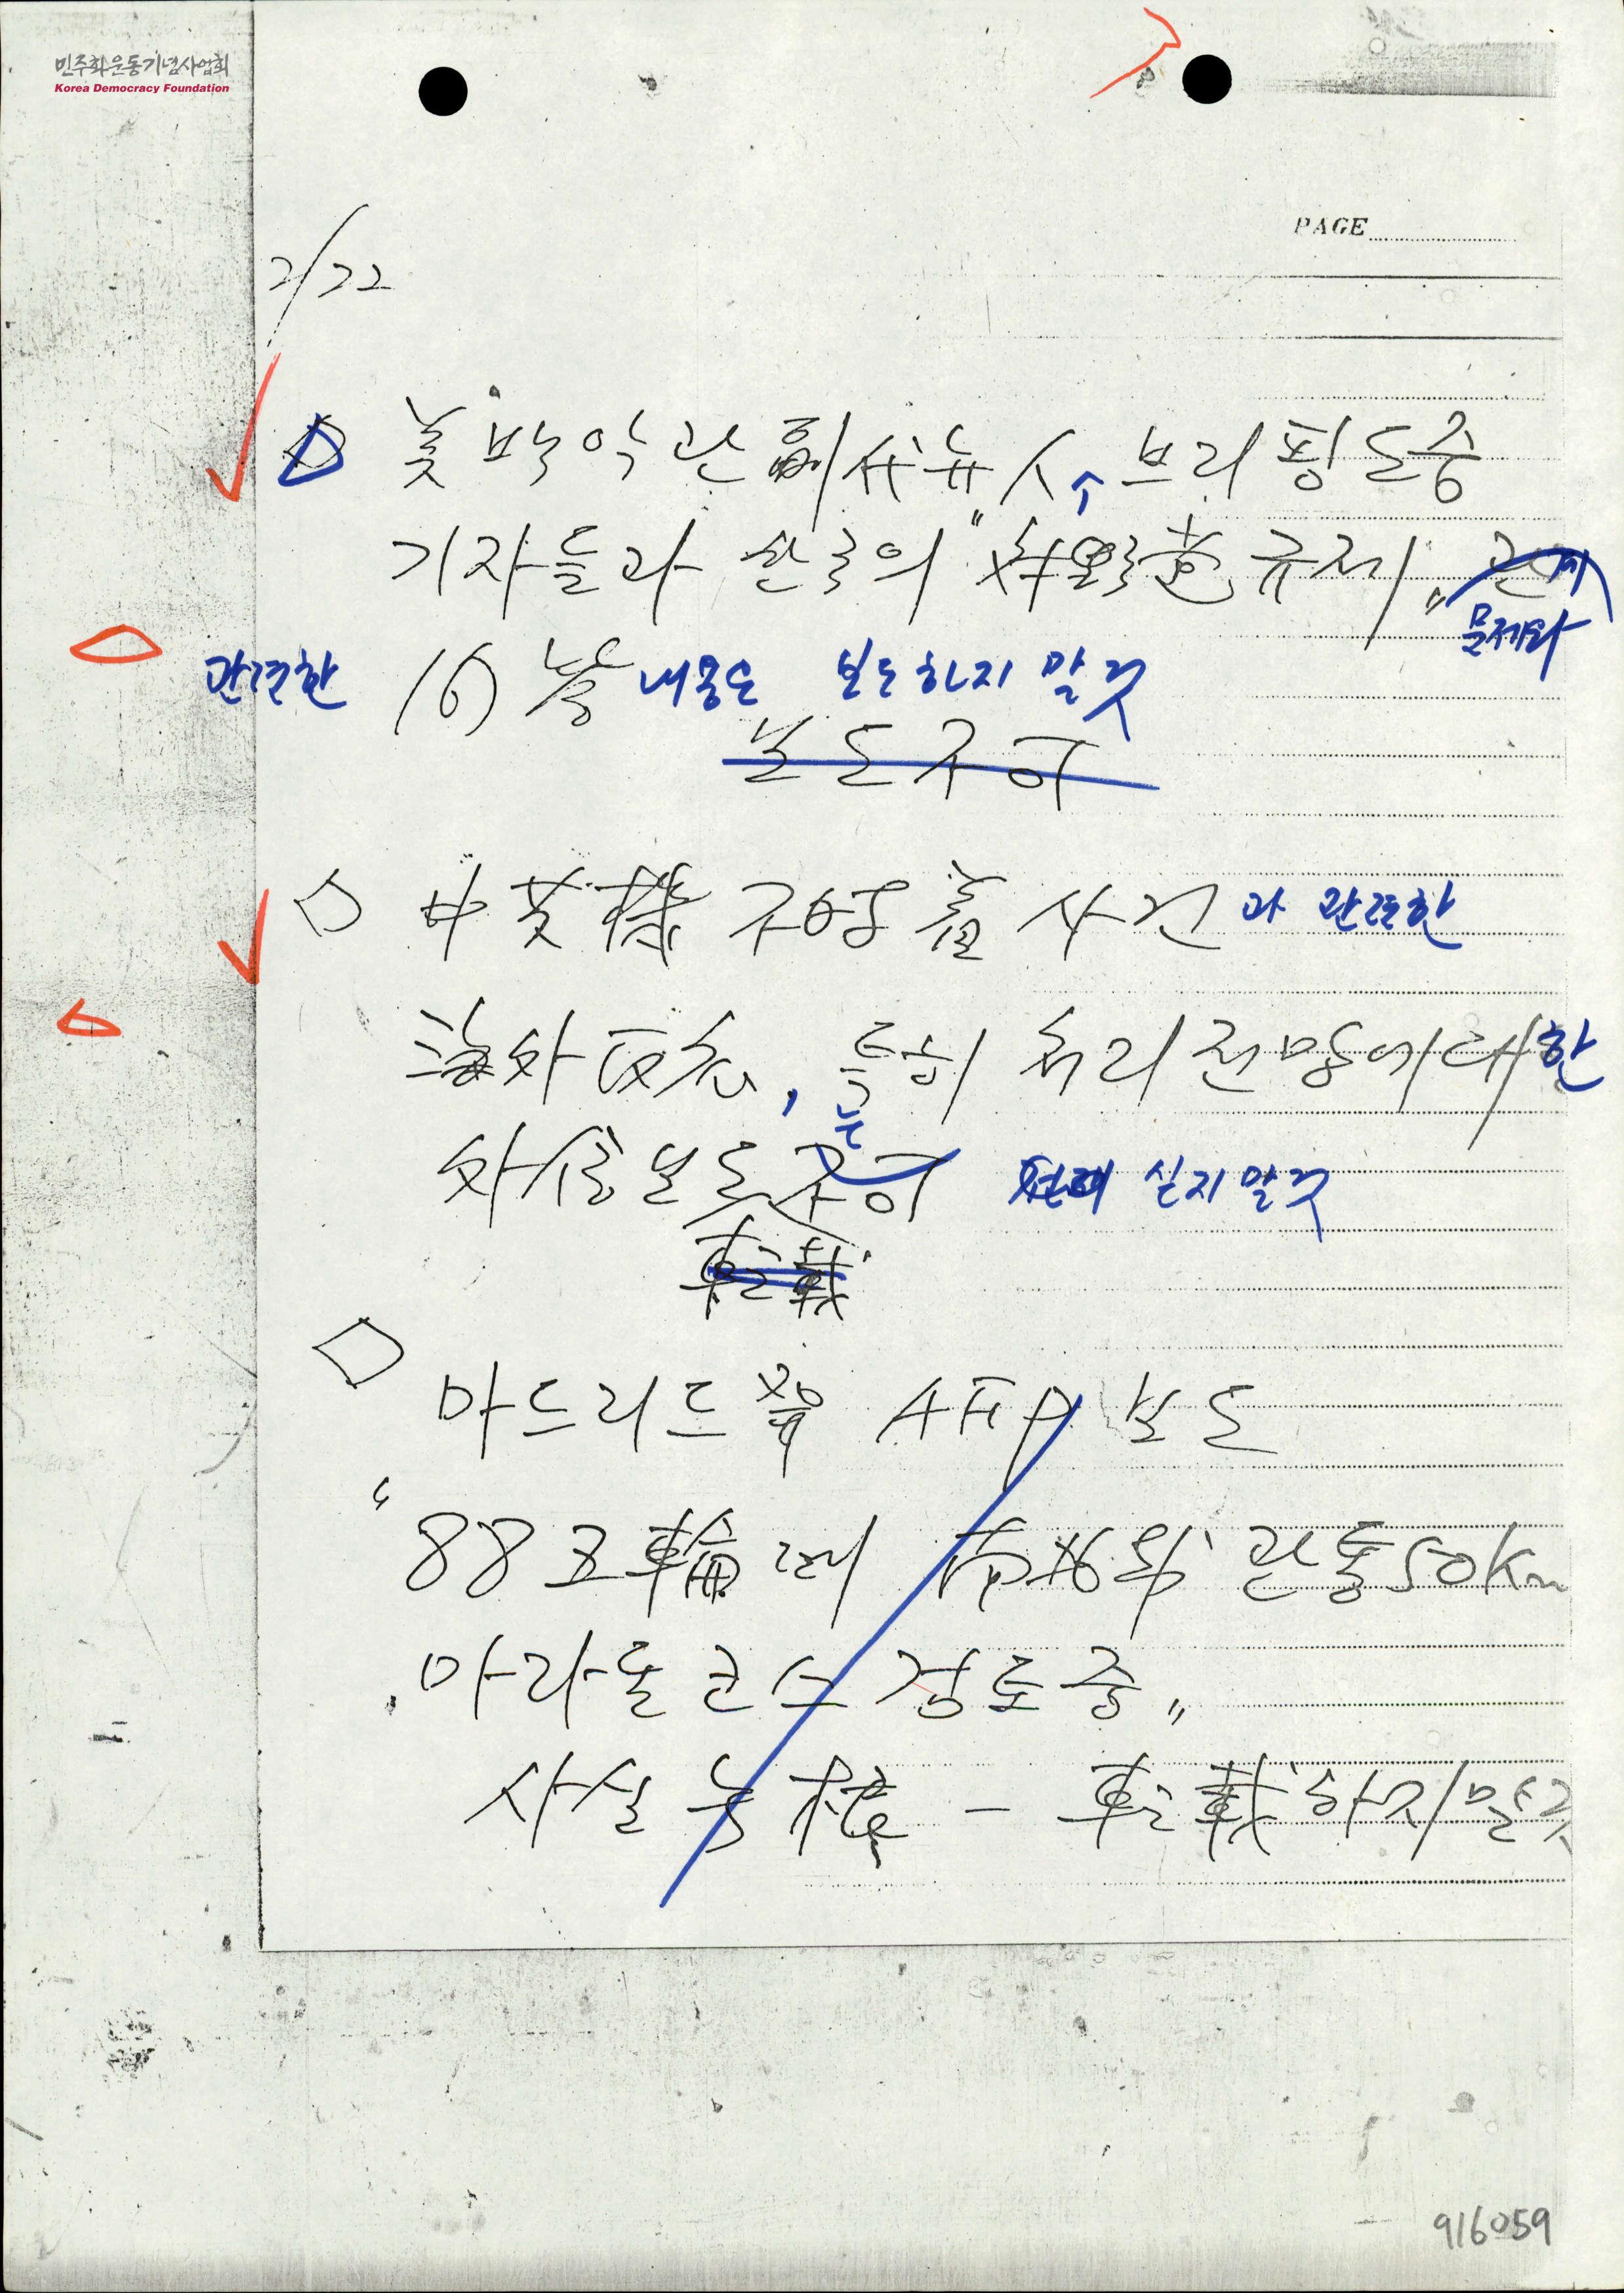 민주화운동기념사업회
Korea Democracy Foundation
PAGE
2/22
美 백악관 副 뉴스 브리핑 도중
기자들과 한국의 "新野党 규제"
문제와
관련한 (6) 내용은 보도하지 말 것
보도 不可
中共機 不時着 사건과 관련한
海外 反応, 특히 처리 전망에 대한
外信 보도 不可 는 싣지 말 것
転載
마드리드発 AFP 보도
"88 五輪 때 南北 관통 50Km
마라톤 코스 검토중"
사실 – 転載하지 말 것
916059